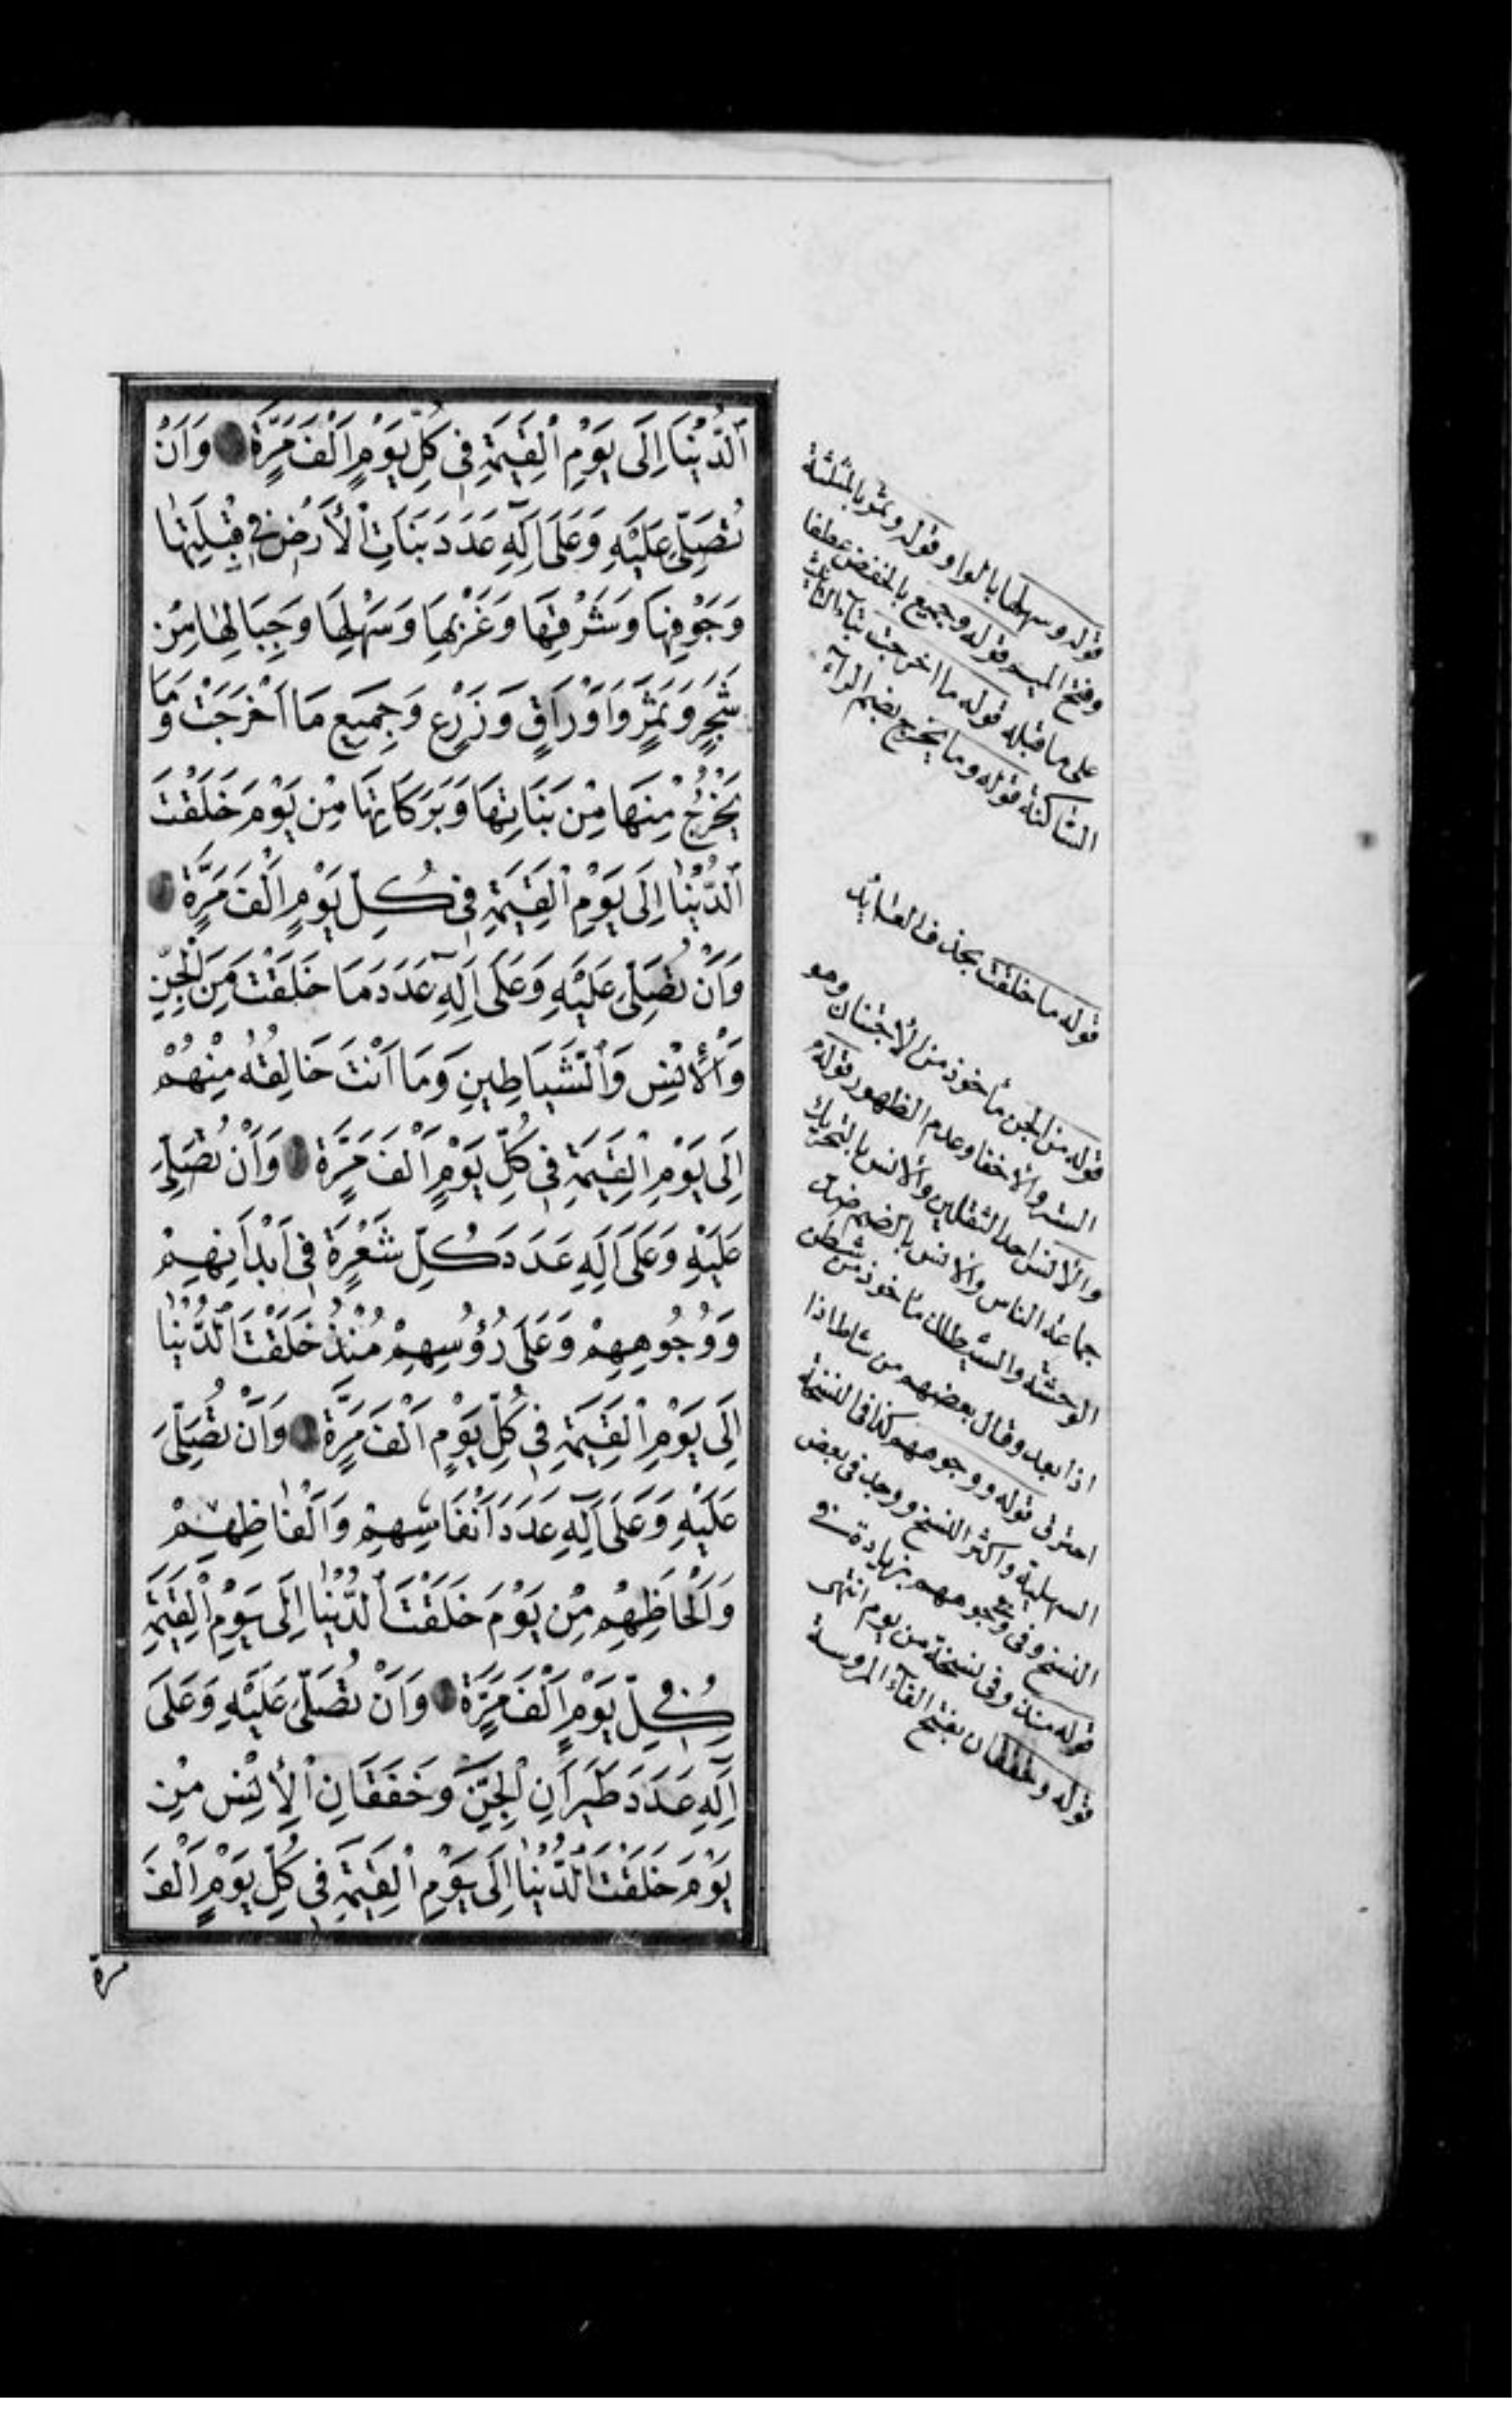 اَلدُّنْيَا اِلَى يَوْمِ الْقِيَمَةِ فِى كُلِّ يَوْمٍ اَلْفَ مَرَّةٍ وَاَنْ
تُصَلِّىَ عَلَيْهِ وَعَلَى اٰلِهِ عَدَدَ نَبَاتِ الْأَرْضِ فِى قِبْلَتِهَا
وَجَوْفِهَا وَشَرْقِهَا وَغَرْبِهَا وَسَهْلِهَا وَجِبَالِهَا مِنْ
شَجَرٍ وَثَمَرٍ وَاَوْرَاقٍ وَزَرْعٍ وَجَمِيعِ مَا اَخْرَجَتْ وَمَا
يَخْرُجُ مِنْهَا مِنْ نَبَاتِهَا وَبَرَكَاتِهَا مِنْ يَوْمَ خَلَقْتَ
اَلدُّنْيَا اِلَى يَوْمِ الْقِيَمَةِ فِى كُلِّ يَوْمٍ اَلْفَ مَرَّةٍ
وَاَنْ تُصَلِّىَ عَلَيْهِ وَعَلَى اٰلِهِ عَدَدَ مَا خَلَقْتَ مِنَ الْجِنِّ
وَالْأِنْسِ وَالشَّيَاطِينِ وَمَا اَنْتَ خَالِقُهُ مِنْهُمْ
اِلَى يَوْمِ الْقِيَمَةِ فِى كُلِّ يَوْمٍ اَلْفَ مَرَّةٍ وَاَنْ تُصَلِّىَ
عَلَيْهِ وَعَلَى اٰلِهِ عَدَدَ كُلِّ شَعْرَةٍ فِى اَبْدَانِهِمْ
وَوُجُوهِهِمْ وَعَلَى رُؤُسِهِمْ مُنْذُ خَلَقْتَ الدُّنْيَا
اِلَى يَوْمِ الْقِيَمَةِ فِى كُلِّ يَوْمٍ اَلْفَ مَرَّةٍ وَاَنْ تُصَلِّىَ
عَلَيْهِ وَعَلَى اٰلِهِ عَدَدَ اَنْفَاسِهِمْ وَاَلْفَاظِهِمْ
وَاَلْحَاظِهِمْ مِنْ يَوْمَ خَلَقْتَ الدُّنْيَا اِلَى يَوْمِ الْقِيَمَةِ
فِى كُلِّ يَوْمٍ اَلْفَ مَرَّةٍ وَاَنْ تُصَلِّىَ عَلَيْهِ وَعَلَى
اٰلِهِ عَدَدَ طَيَرَانِ الْجِنِّ وَخَفَقَانِ الْأِنْسِ مِنْ
يَوْمَ خَلَقْتَ الدُّنْيَا اِلَى يَوْمِ الْقِيَمَةِ فِى كُلِّ يَوْمٍ اَلْفَ
مرة
قوله وسهلها بالواو قوله وثمر بالمثلثة
وفتح الميم قوله وجميع بالخفض عطفا
على ما قبله قوله ما اخرجت بتاء التانيث
الساكنة قوله وما يخرج بضم الراء
قوله ما خلقت بحذف العائد
قوله من الجن مأخوذ من الاجتنان وهو
الستر والاخفا وعدم الظهور قوله
والانس احد الثقلين والانس بالتحريك
جماعة الناس والانس بالضم ضد
الوحشة والشيطان مأخوذ من شطن
اذا بعد وقال بعضهم من شاط اذا
احترق قوله ووجوههم كذا فى النسخة
السهلية واكثر النسخ ووجد فى بعض
النسخ وفى وجوههم بزيادة فى
قوله منذ وفى نسخة من يوم انتهى
قوله وخفقان بفتح الفاء المروسة